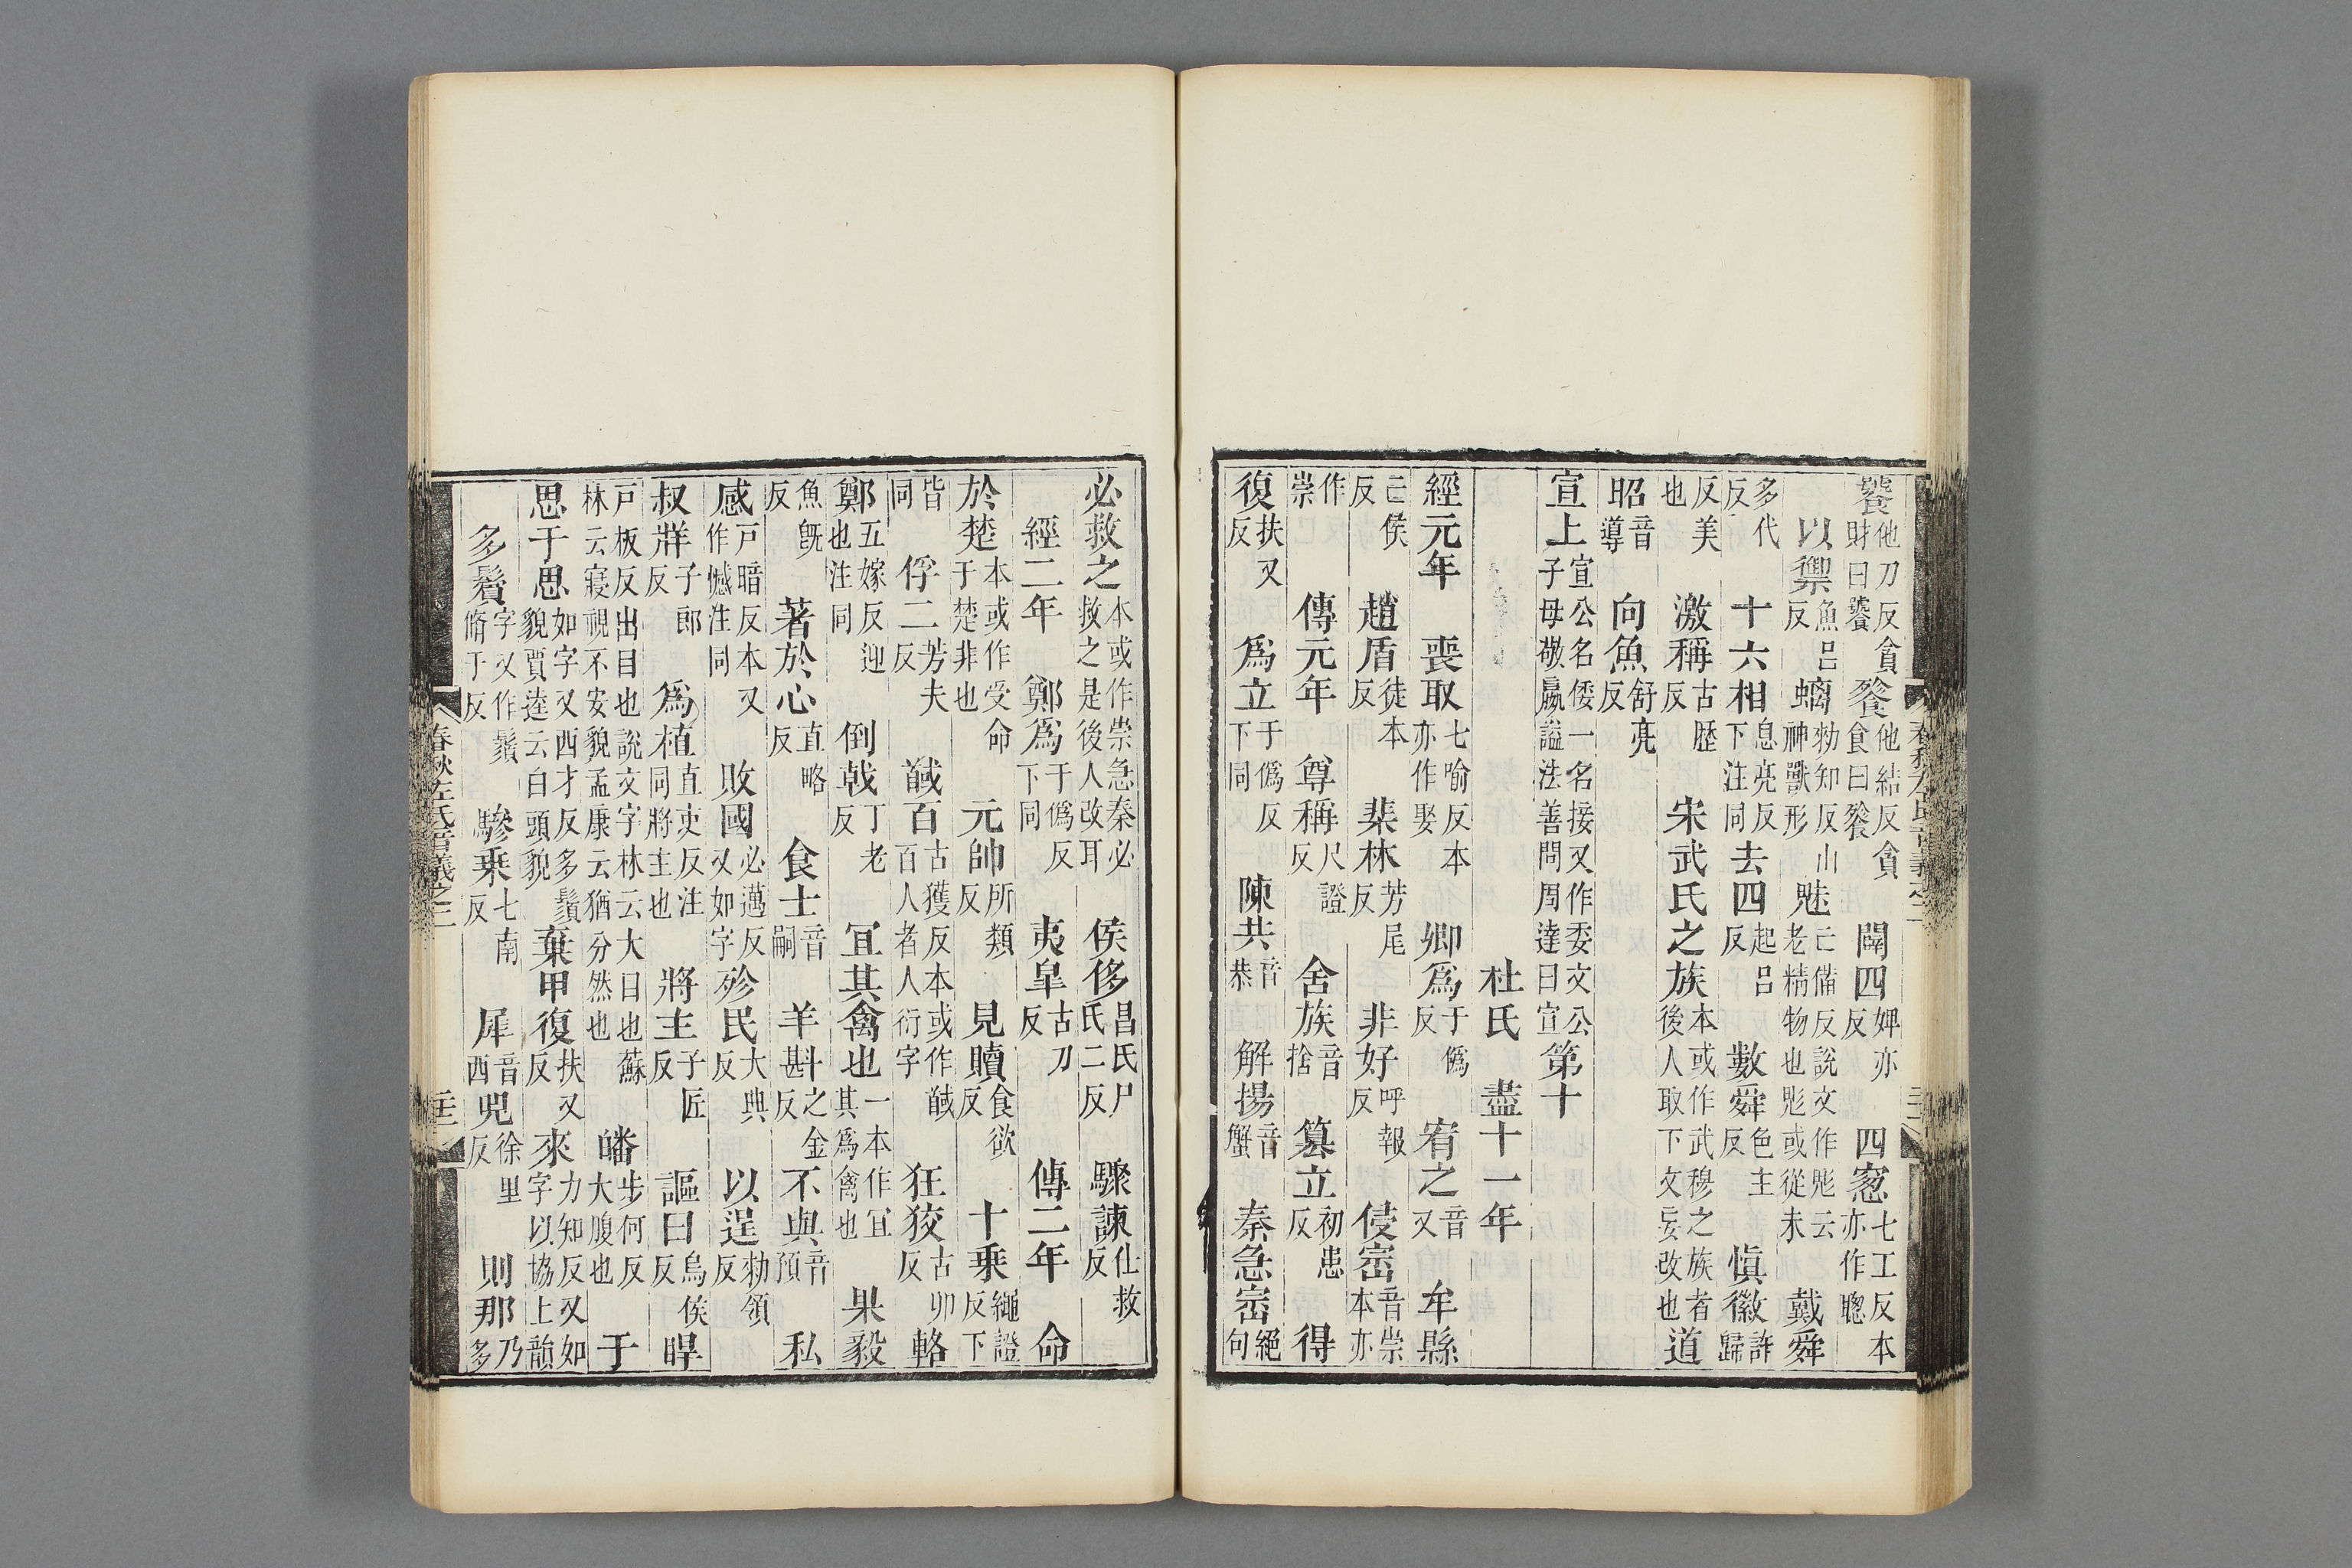 饕他刀反貪財曰饕餮他結反貪食曰餮闢四婢亦反四窻七工反本亦作聰
以禦魚呂反螭勑知反山神獸形魅亡備反說文作鬽云老精物也鬽或從未戴舜
多代反十六相息亮反下注同去四起呂反數舜色主反愼徽許歸
反美也激稱古歷反宋武氏之族本或作武穆之族者後人取下文妄改也道
昭音導向魚舒亮反
宣上宣公名倭一名接又作委文公子母敬嬴謚法善問周達曰宣第十
杜氏 盡十一年
經元年喪取七喻反本亦作娶卿爲于僞反宥之音又牟縣
亡侯反趙盾徒本反棐林芳尾反非好呼報反侵崈音崇本亦
作崇傳元年尊稱尺證反舍族音捨簒立初患反得
復扶又反爲立于僞反下同陳共音恭解揚音蟹秦急崈絕句
必救之本或作崇急秦必救之是後人改耳侯侈昌氏尸氏二反驟諫仕救反
經二年鄭爲于僞反下同夷皐古刀反傳二年命
於楚本或作受命于楚非也元帥所類反見贖食欲反十乗繩證反下
皆同俘二芳夫反馘百古獲反本或作馘百人者人衍字狂狡古卯反輅
鄭五嫁反迎也注同倒戟丁老反冝其禽也一本作冝其爲禽也果毅
魚旣反著於心直略反食士音嗣羊斟之金反不與音預私
感戸暗反本又作憾注同敗國必邁反又如字殄民大典反以逞勑領反
叔牂子郎反爲植直吏反注同將主也將主子匠反謳曰烏侯反睅
戸板反出目也說文字林云大目也蘇林云寢視不安貌孟康云猶分然也皤步何反大腹也于
思于思如字又西才反多鬚貌賈逵云白頭貌棄甲復扶又反來力知反又如字以協上韻
多鬚字又作鬚脩于反驂乗七南反犀音西兕徐里反則那乃多
春秋左氏音義之三